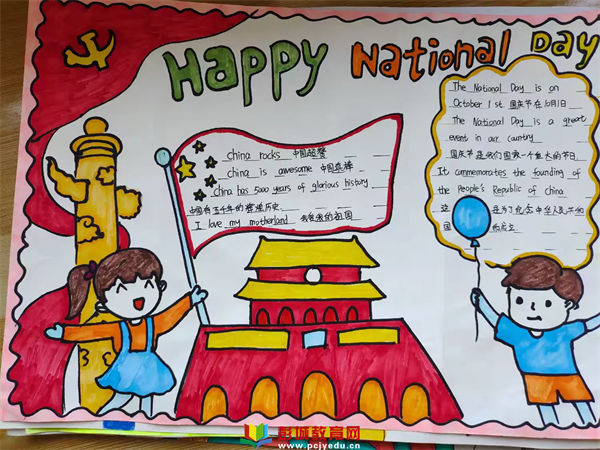 Happy National Day
China rocks 中国超赞
China is awesome 中国真棒
China has 5000 years of glorious history
中国有五千年的辉煌历史.
I love my motherland 我爱我的祖国
The National Day is on
October 1st 国庆节在10月1日
The National Day is a great
event in our country
国庆节是我们国家一个重大的节日.
It commemorates the founding of
the People's Republic of China
这 是为了纪念中华人民共和
国 的成立
彭城教育网
www.pcjyedu.cn